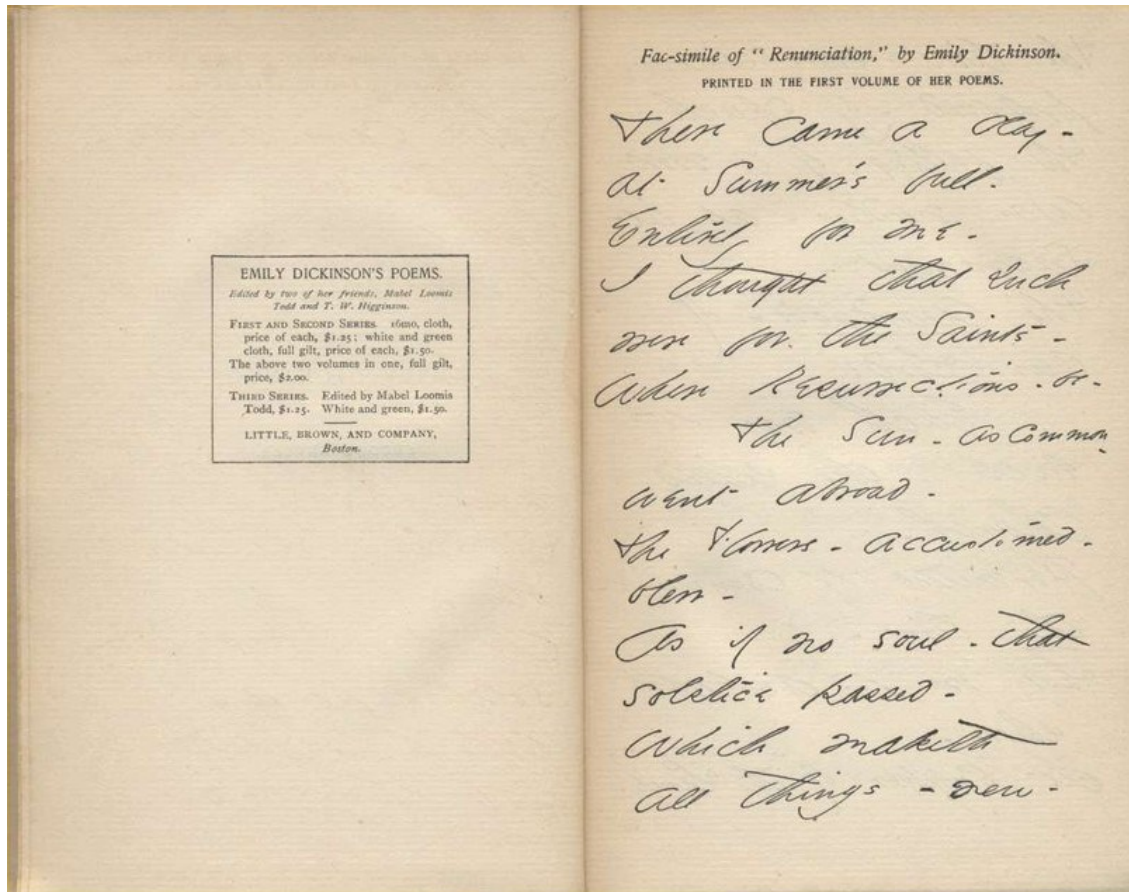 EMILY DICKINSON'S POEMS.
Edited by two of her friends, Mabel Loomis
Todd and T. W. Higginson.
FIRST AND SECOND SERIES. 16mo, cloth,
price of each, $1.25; white and green
cloth, full gilt, price of each, $1.50.
The above two volumes in one, full gilt,
price, $2.00.
THIRD SERIES. Edited by Mabel Loomis
Todd, $1.25. White and green, $1.50.
LITTLE, BROWN, AND COMPANY,
Boston.
Fac-simile of "Renunciation," by Emily Dickinson.
PRINTED IN THE FIRST VOLUME OF HER POEMS.
There came a day -
at Summer's full.
Entirely for me -
I thought that such
were for the Saints -
Where Resurrections - be -
The Sun - as common
went abroad -
The flowers - accustomed -
blew -
As if no soul - that
solstice passed -
Which maketh
all things - new -